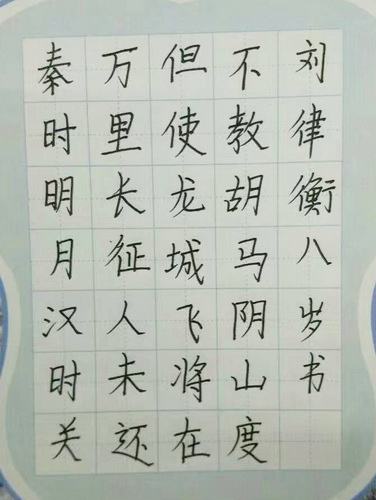 秦时明月汉时关
万里长征人未还
但使龙城飞将在
不教胡马阴山度
刘律衡八岁书